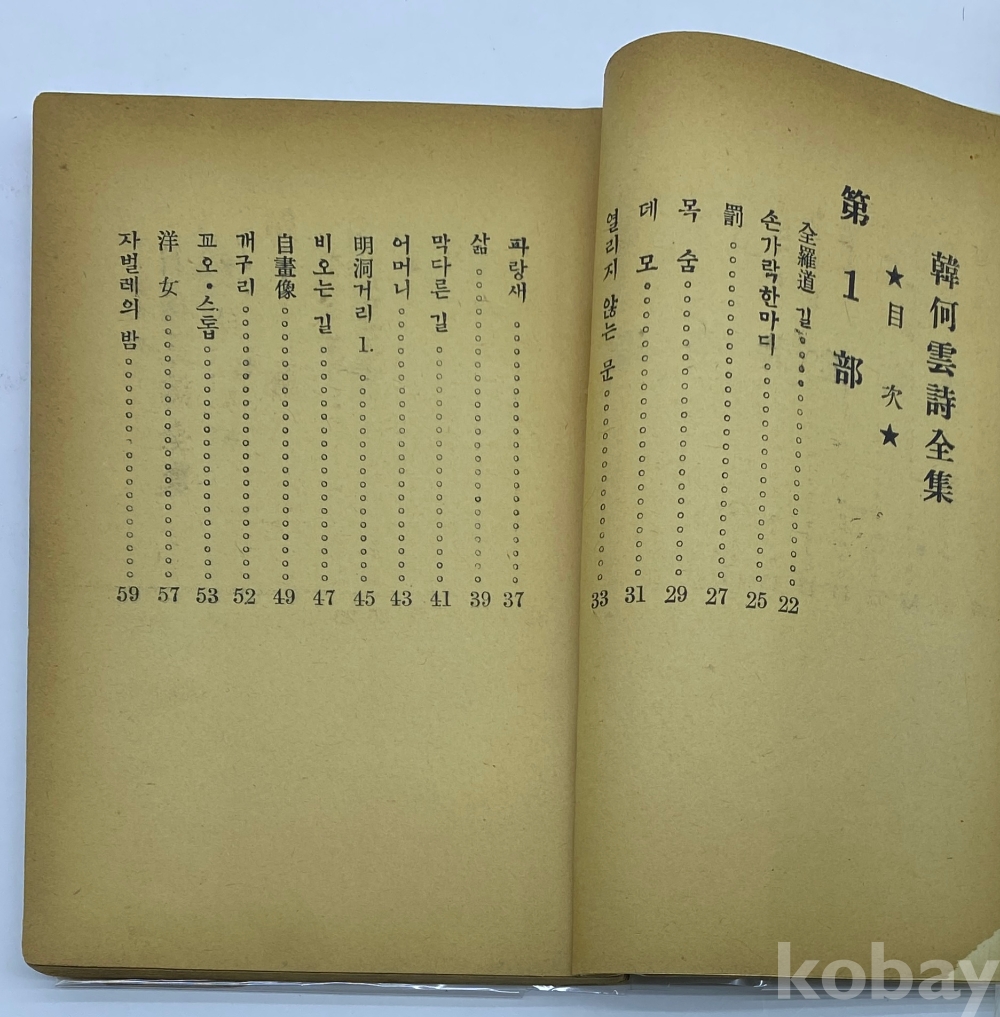 韓何雲詩全集
★目次★
第1部
全羅道 길 22
손가락한마디 25
罰 27
목숨 29
데모 31
열리지 않는 문 33
파랑새 37
삶 39
막다른 길 41
어머니 43
明洞거리 1. 45
비오는 길 47
自畫像 49
개구리 52
꼬오·스톱 53
洋女 57
자벌레의 밤 59
kobay